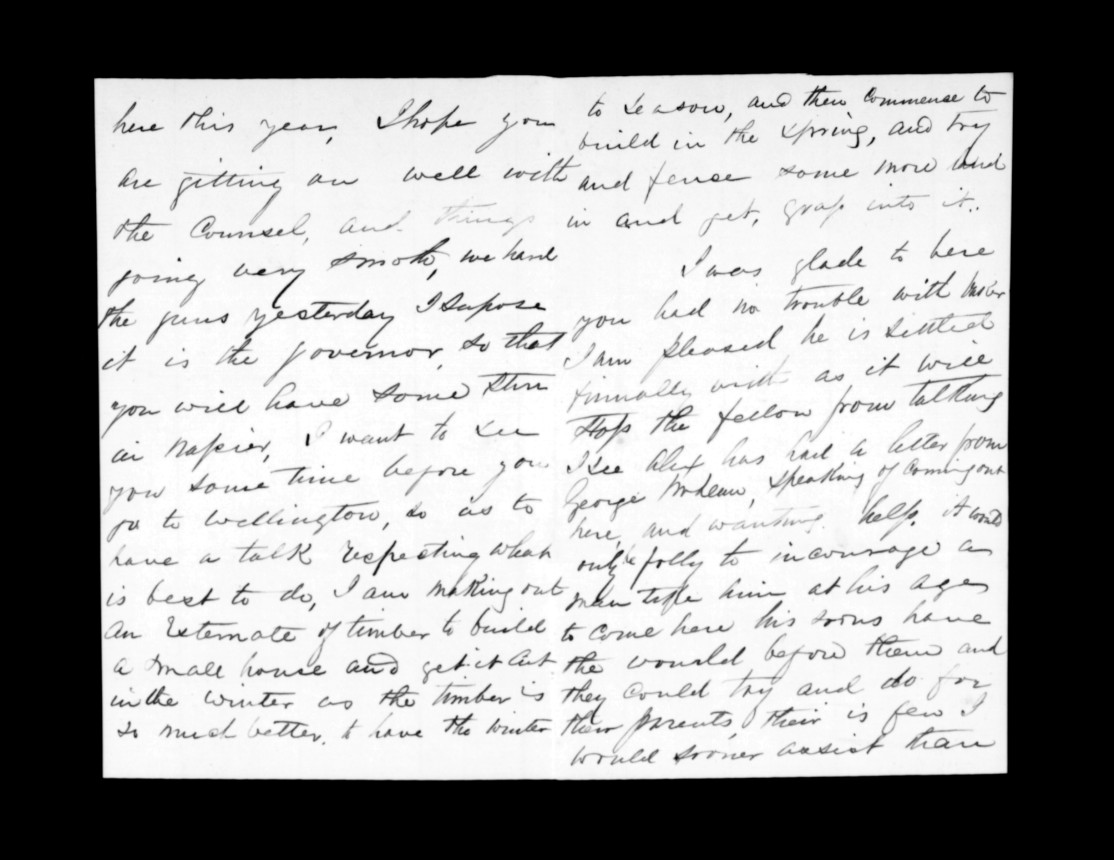 here this year, I hope you
are gitting on well with
the Counsel, and things
going very smoth, we hard
the guns yesterday I Supose
it is the governor, so that
you will have some Stir
in Napier, I want to see
you some time before you
go to Wellington, so as to
have a talk respecting what
is best to do, I am making out
an Estemate of timber to build
a small house and get it Cut
in the winter as the timber is
so much better, to have the winter
to season, and then Commence to
build in the spring, and try
and fense some more land
in and get, grass into it.
I was glade to here
you had no trouble with
I am pleased he is Sittled
finnally with as it will
Stop the fellow from talking
I See Alex has had a letter from
George speaking of Coming out
here, and wanting help, it would
only be folly to incourage a
man like him at his age
to come here his sons have
the would before them and
they could try and do for
their parents, their is few I
would sooner assist than